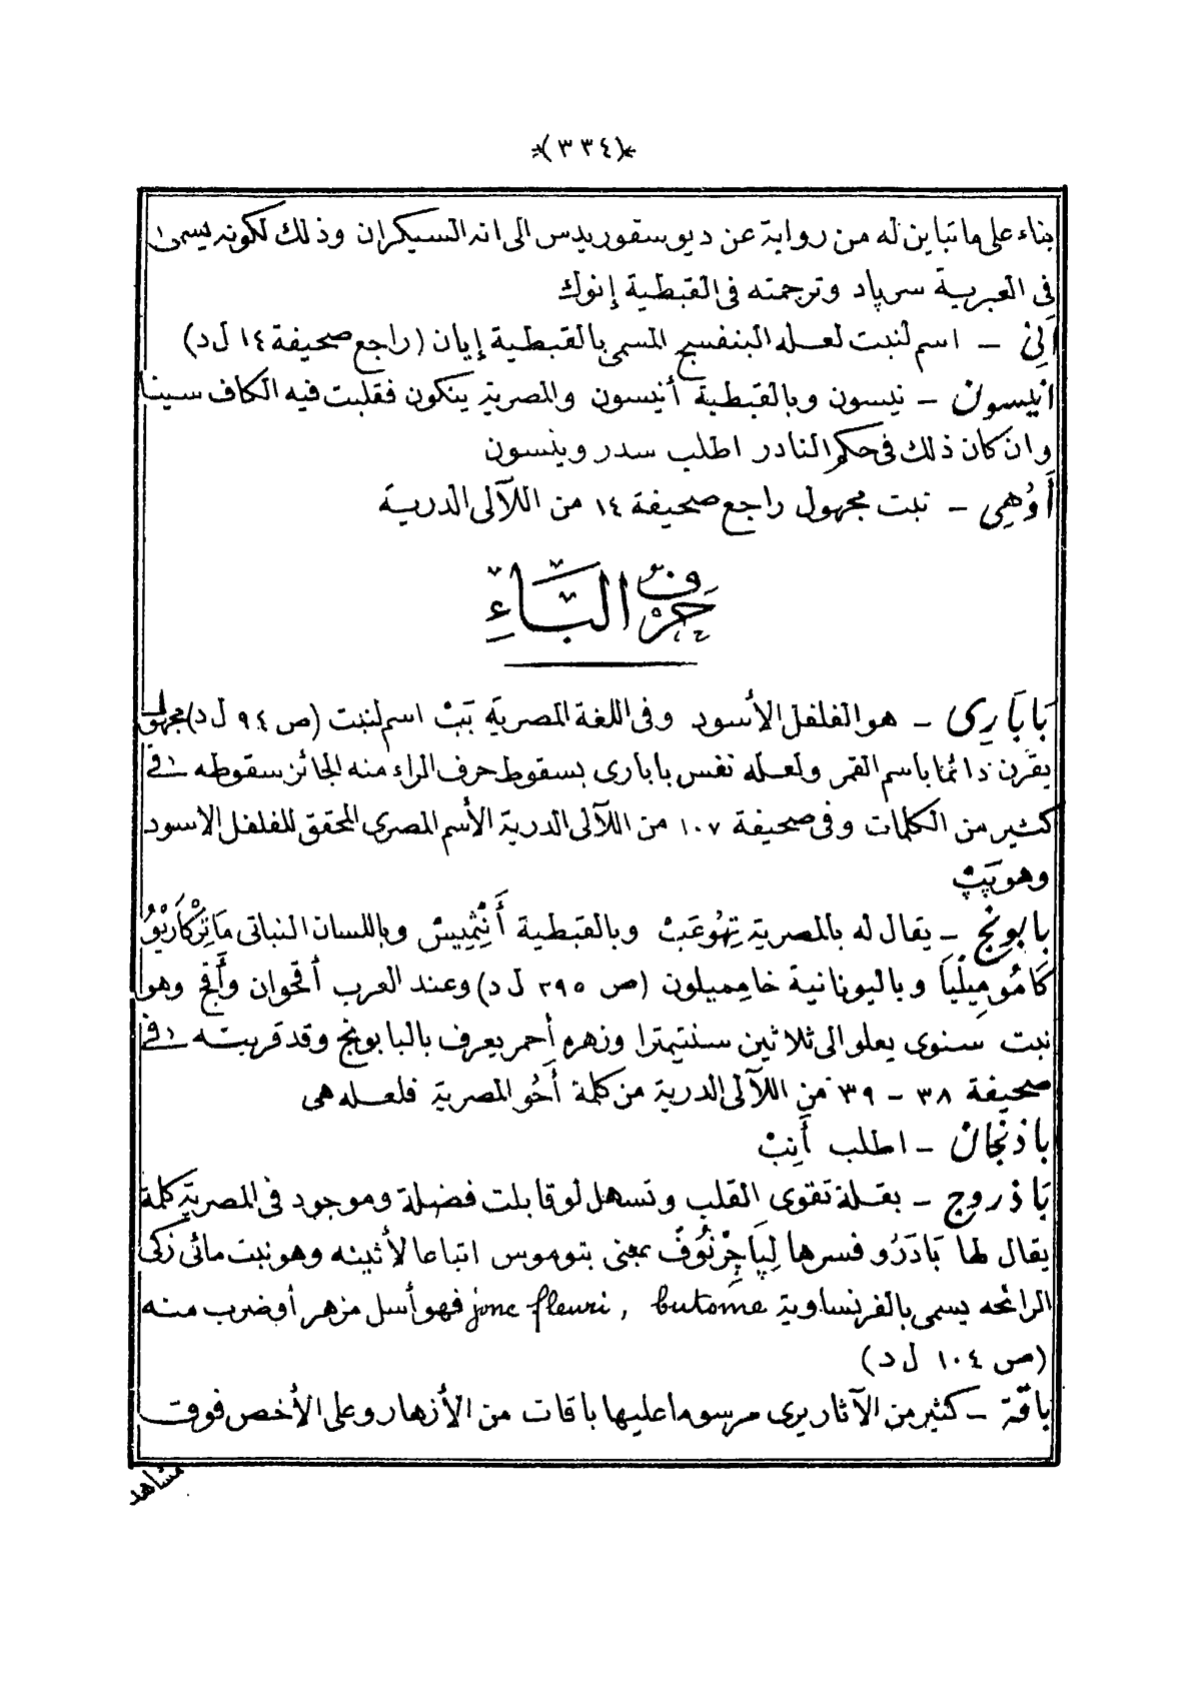 *(٣٣٤)*
بناء على ما تباين له من رواية عن ديوسقوريدس الى انه السيكران وذلك لكونه يسمى
فى العبرية سرپاد وترجمته فى القبطية إنوك
اَنِى – اسم لنبت لعله البنفسج المسمى بالقبطية إيان (راجع صحيفة ١٤ ل د)
انيسون – نيسون وبالقبطية أنيسون والمصرية ينكون فقلبت فيه الكاف سينا
وان كان ذلك فى حكم النادر اطلب سدر وينسون
أَوُهِى – نبت مجهول راجع صحيفة ١٤ من اللآلى الدرية
حَرْف البَّاءِ
بَابَارِى – هو الفلفل الأسود وفى اللغة المصرية بَبْ اسم لنبت (ص ٩٤ ل د) مجهول
يقرن دائما باسم القمر ولعله نفس بابارى بسقوط حرف الراء منه الجائز سقوطه فى
كثير من الكلمات وفى صحيفة ١٠٧ من اللآلى الدرية الأسم المصرى المحقق للفلفل الاسود
وهو پَپْ
بابونج – يقال له بالمصرية تِهُوعَبْ وبالقبطية أَنْثِمِيسْ وباللسان النباتى مَاتِرْكَارْيُو
كَامُومِيلْيَا وباليونانية خاميميلون (ص ٢٩٥ ل د) وعند العرب أقحوان وأَقح وهو
نبت سنوى يعلو الى ثلاثين سنتيمترا وزهره أحمر يعرف بالبابونج وقد قربته فى
صحيفة ٣٨ – ٣٩ من اللآلى الدرية من كلمة أَحُو المصرية فلعله هى
باذنجان – اطلب أَنِبْ
بَاذروج – بقلة تقوى القلب وتسهل لو قابلت فضلة وموجود فى المصرية كلمة
يقال لها بَادَرُو فسرها لِپَاچِرْنُوفْ بمعنى بتوموس اتباعا لأثينه وهو نبت مائى زكى
الرائحه يسمى بالفرنساوية jonc fleuri, butome فهو أسل مزهر أو ضرب منه
(ص ١٠٤ ل د)
باقة – كثير من الآثار يرى مرسوما عليها باقات من الأزهار وعلى الأخص فوق
مشاهد